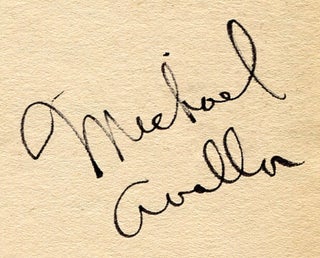 Michael
Avallone